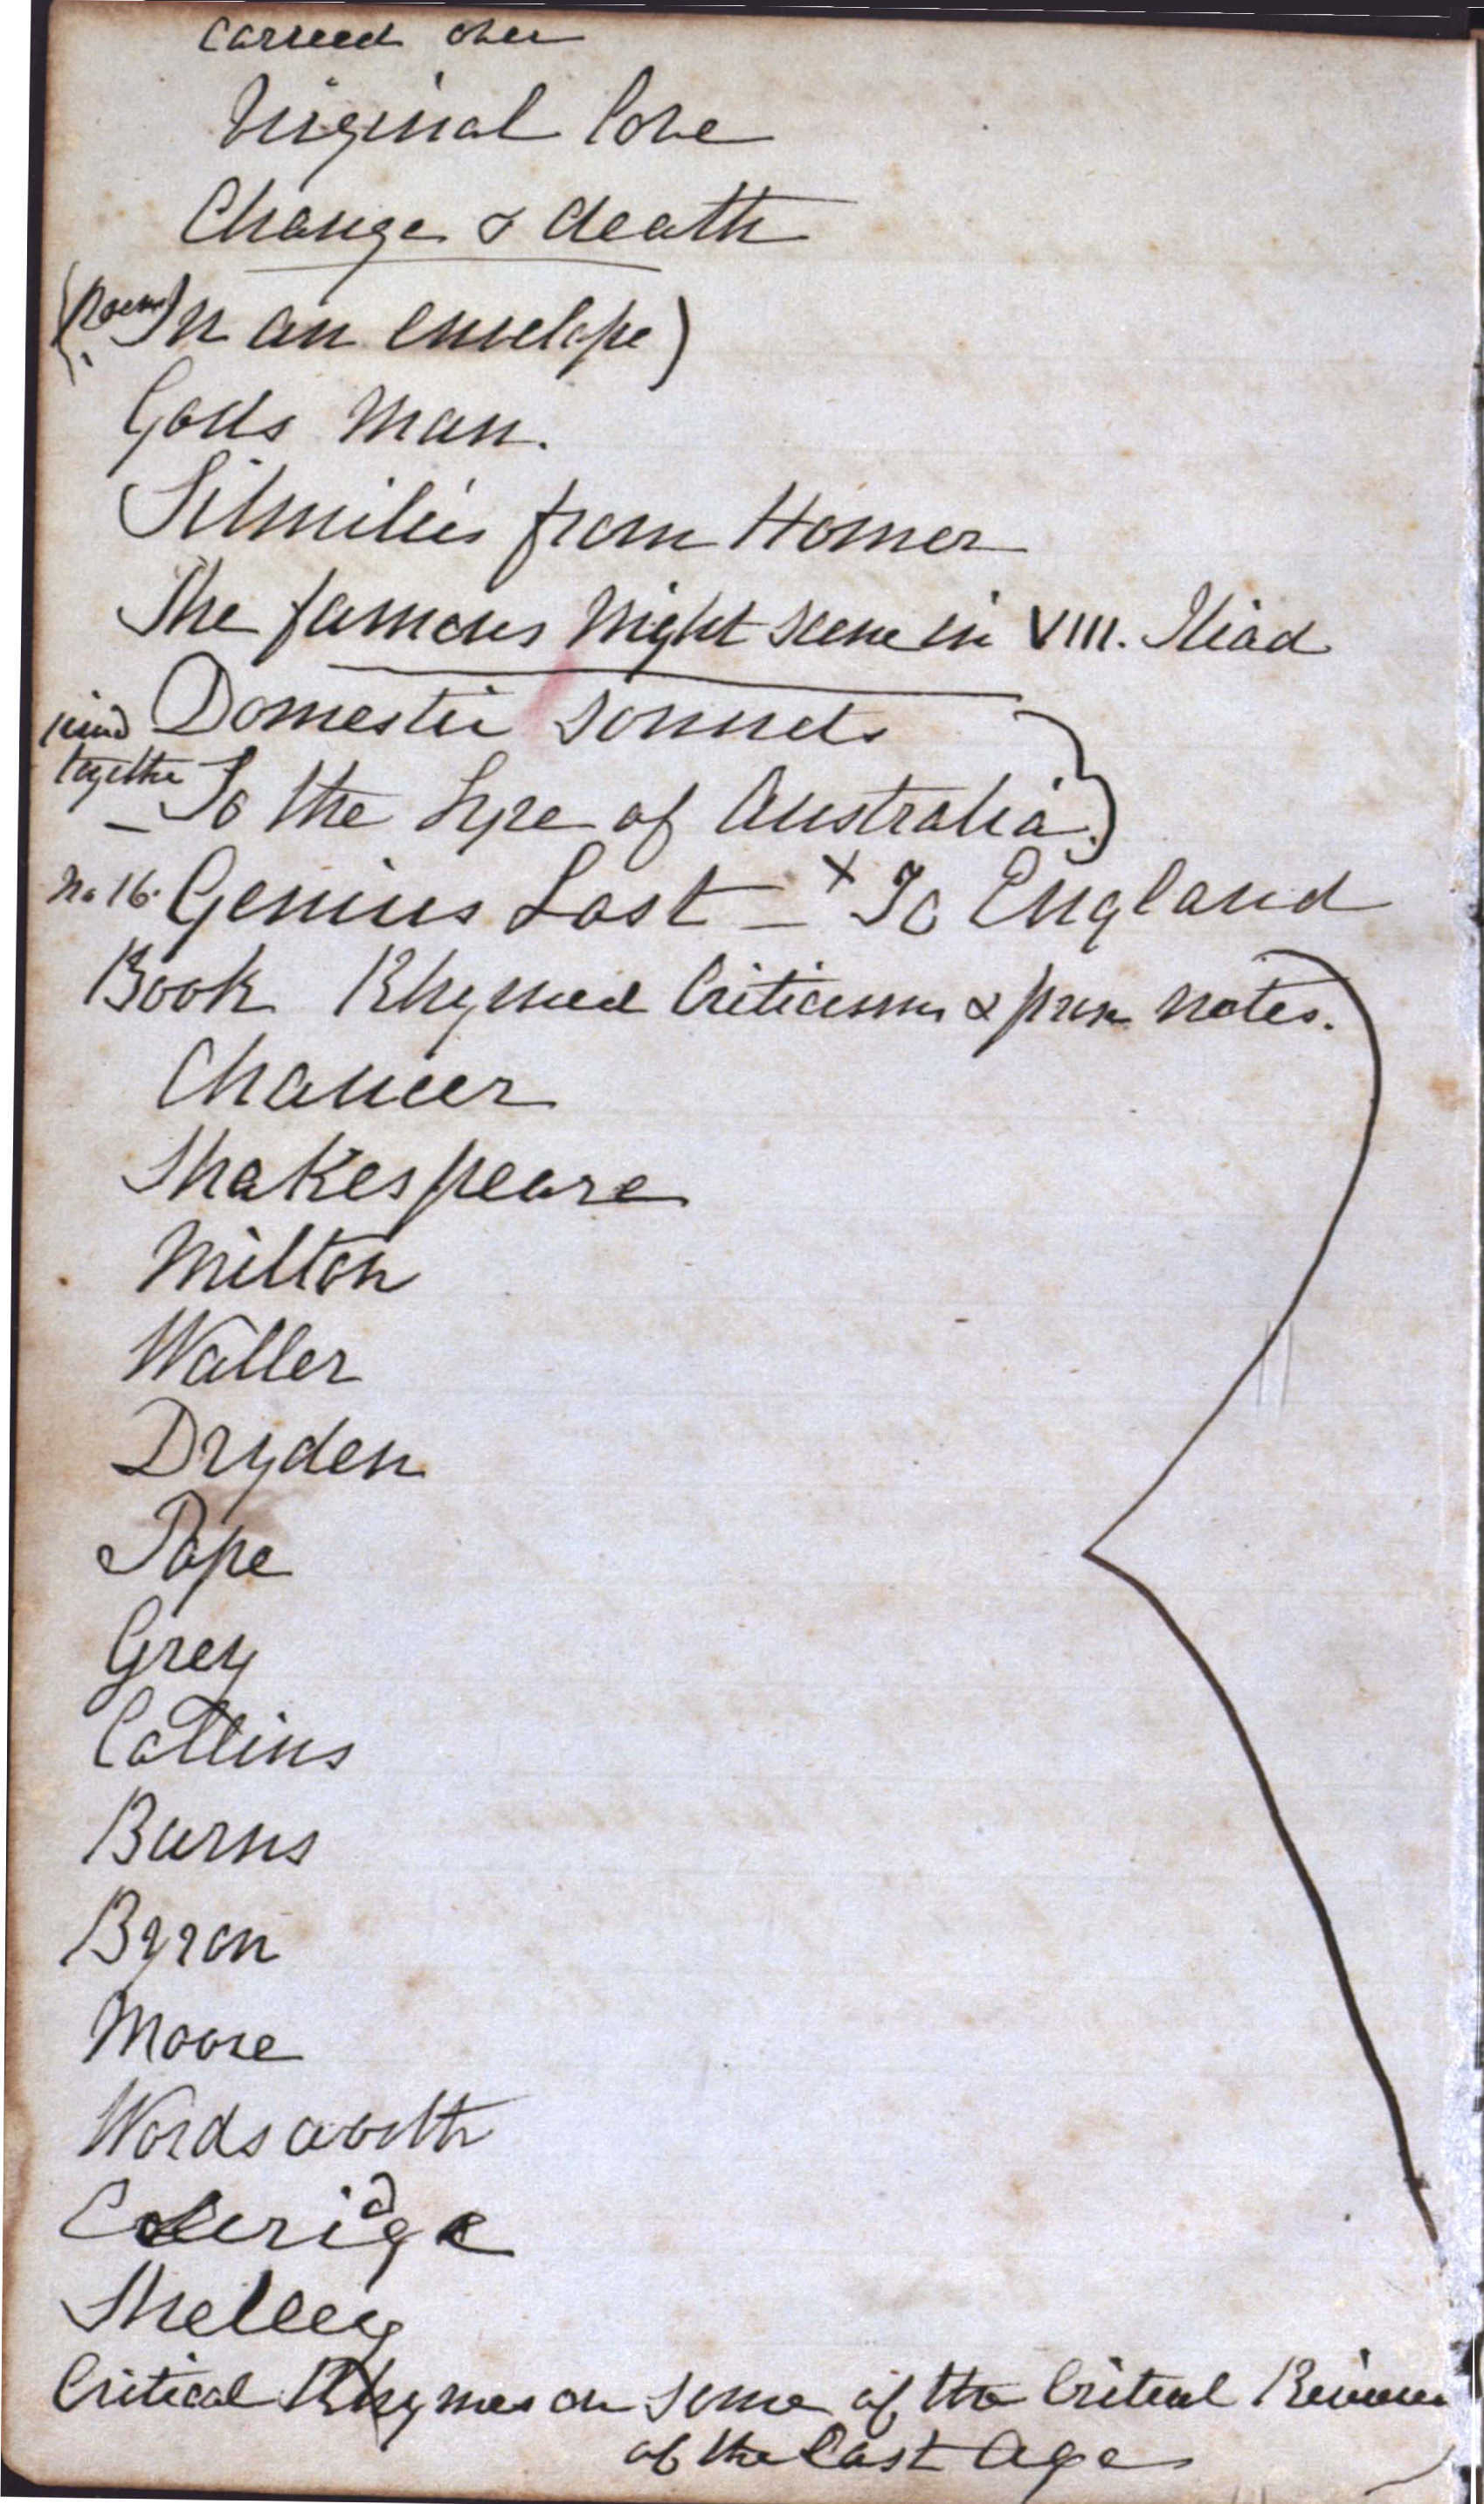 carried over
Virginal love
Change & death
(poem) In an envelope)
Gods Man.
Similies from Homer
The famous Night scene in VIII. Iliad
Domestic Sonnets
joined together
To the Lyre of Australia.
No 16. Genius Lost – x To England
Book Rhymed Criticisms & prose notes.
Chaucer
Shakespeare
Milton
Waller
Dryden
Pope
Grey
Collins
Burns
Byron
Moore
Wordsworth
Coleridge
Shelley
Critical Rhymes on some of the Critical
of the last Age